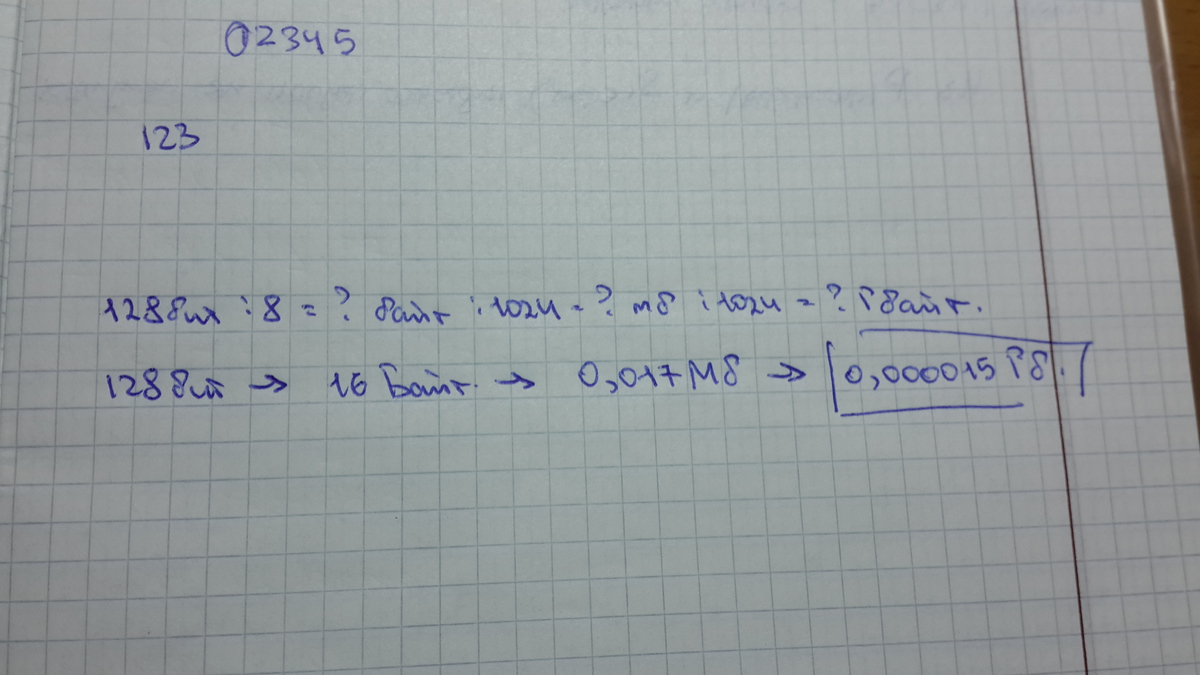 02345
123
128бит : 8 = ? байт : 1024 = ? мб : 1024 = ? Гбайт.
128бит → 16 Байт. → 0,017Мб → 0,000015 Гб.